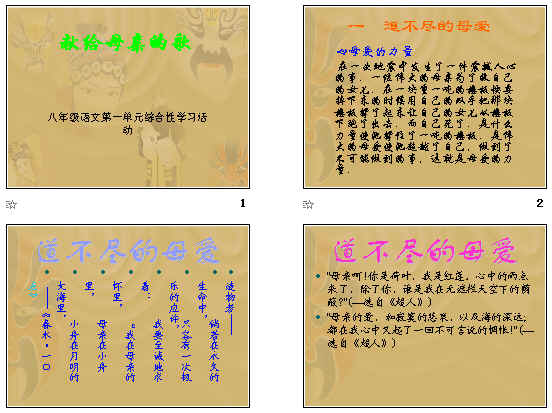 献给母亲的歌
八年级语文第一单元综合性学习活
动
1
一 道不尽的母爱
心母爱的力量
在一次地震中发生了一件震撼人心
的事,一位伟大的母亲为了救自己
的女儿,在一块重一吨的楼板快要
掉下来的时候用自己的双手把那块
楼板撑了起来让自己的女儿从楼板
下跑了出去,而自己死了,是什么
力量使她撑住了一吨的楼板,是伟
大的母爱使她超越了自己,做到了
不可能做到的事,这就是母爱的力
量.
2
道不尽的母爱
造物者——
倘若在永久的
生命中,
只容有一次极
乐的应许。
我要至诚地求
着:
“我在母亲的
怀里,
母亲在小舟
里,
小舟在月明的
大海里。
——《春水·一〇
道不尽的母爱
"母亲啊!你是荷叶,我是红莲。心中的雨点
来了,除了你,谁是我在无遮拦天空下的荫
蔽?"(—选自《超人》)
"母亲的爱,和寂寞的悲哀,以及海的深远:
都在我心中又起了一回不可言说的惆怅!"(—
选自《超人》)